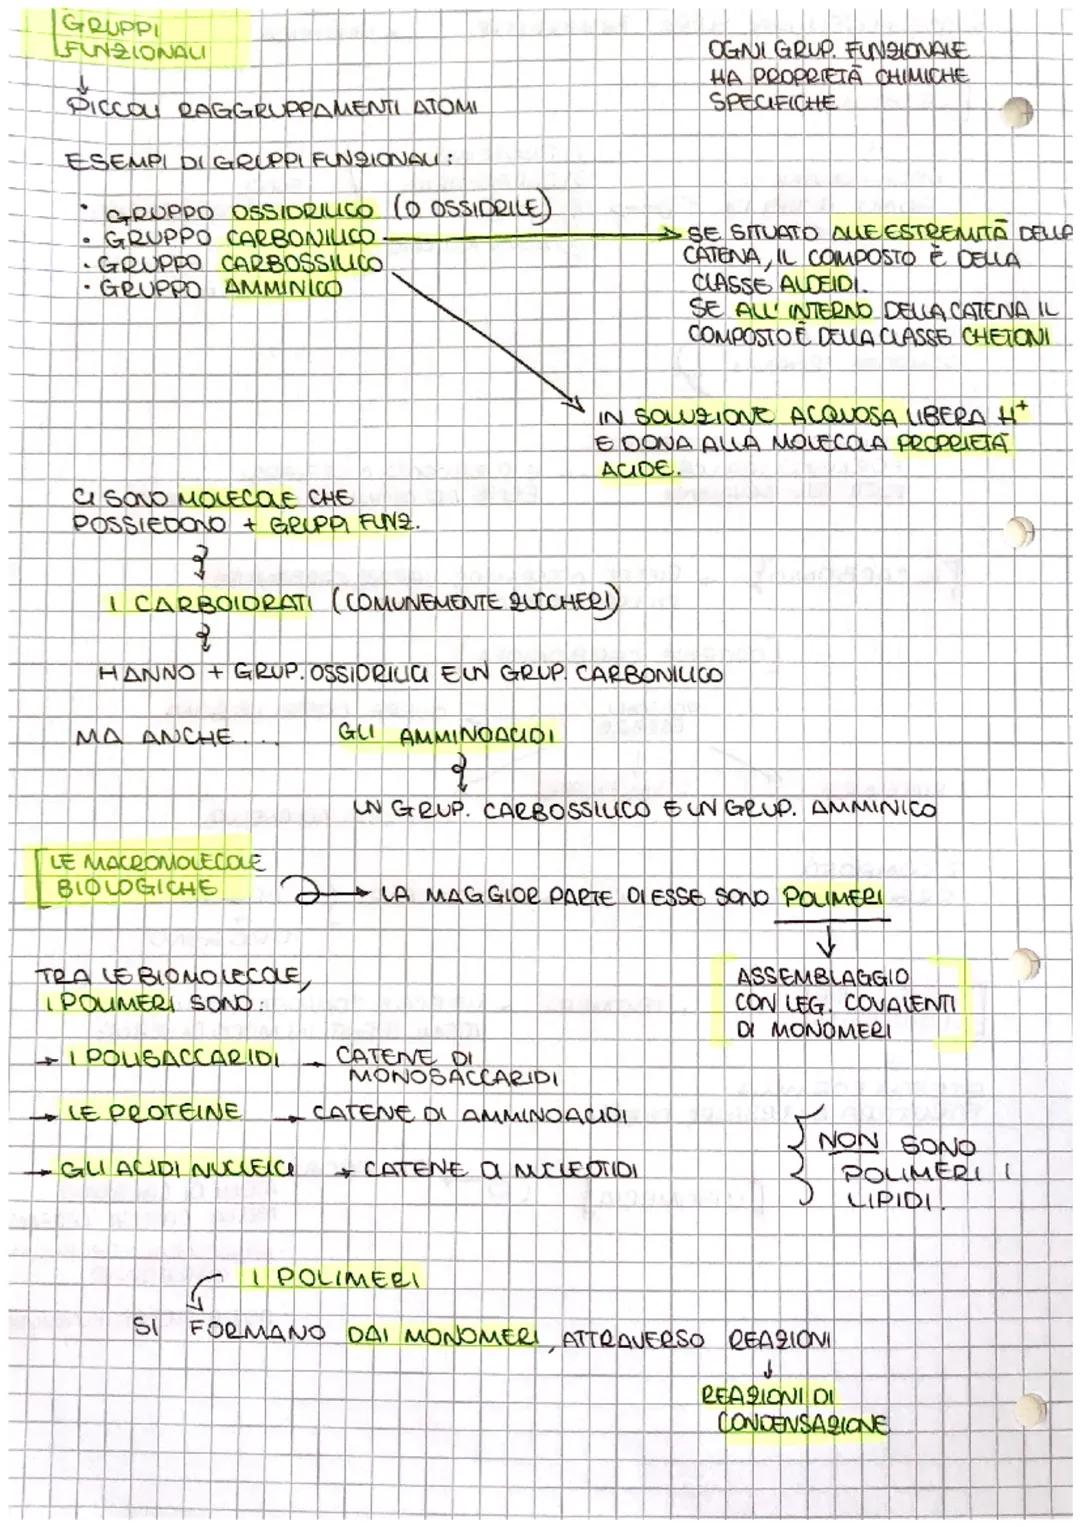 GRUPPI
FUNZIONALI
OGNI GRUP. FUNZIONALE
HA PROPRIETÀ CHIMICHE
SPECIFICHE
PICCOLI RAGGRUPPAMENTI ATOMI
ESEMPI DI GRUPPI FUNZIONALI:
• GRUPPO OSSIDRILICO (O OSSIDRILE)
• GRUPPO CARBONILICO
• GRUPPO CARBOSSILICO
• GRUPPO AMMINICO
SE SITUATO ALLE ESTREMITÀ DELLA
CATENA, IL COMPOSTO È DELLA
CLASSE ALDEIDI.
SE ALL'INTERNO DELLA CATENA IL
COMPOSTO È DELLA CLASSE CHETONI
IN SOLUZIONE ACQUOSA LIBERA H+
E DONA ALLA MOLECOLA PROPRIETÀ
ACIDE.
CI SONO MOLECOLE CHE
POSSIEDONO + GRUPPI FUNZ.
I CARBOIDRATI (COMUNEMENTE ZUCCHERI)
HANNO + GRUP. OSSIDRILICI E UN GRUP. CARBONILICO
MA ANCHE... GLI AMMINOACIDI
UN GRUP. CARBOSSILICO E UN GRUP. AMMINICO
LE MACROMOLECOLE
BIOLOGICHE
LA MAGGIOR PARTE DI ESSE SONO POLIMERI
ASSEMBLAGGIO
CON LEG. COVALENTI
DI MONOMERI
TRA LE BIOMOLECOLE,
I POLIMERI SONO:
→ I POLISACCARIDI → CATENE DI
MONOSACCARIDI
→ LE PROTEINE → CATENE DI AMMINOACIDI
→ GLI ACIDI NUCLEICI → CATENE DI NUCLEOTIDI
NON SONO
POLIMERI I
LIPIDI.
I POLIMERI
SI FORMANO DAI MONOMERI, ATTRAVERSO REAZIONI
REAZIONI DI
CONDENSAZIONE